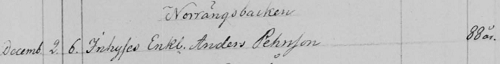 Norrängsbacken
Decemb. 2. 6. Inhyses Enkl. Anders Pehrsson 88 år.